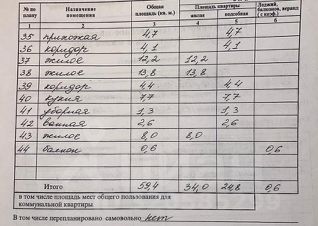 № по плану Назначение помещения Общая площадь (кв. м.) Площадь квартиры Лоджий, балконов, веранд (с коэф.)
жилая подсобная
1 2 3 4 5 6
35 прихожая 4,7 4,7
36 коридор 4,1 4,1
37 жилое 12,2 12,2
38 жилое 13,8 13,8
39 коридор 4,4 4,4
40 кухня 7,7 7,7
41 уборная 1,3 1,3
42 ванная 2,6 2,6
43 жилое 8,0 8,0
44 балкон 0,6 0,6
Итого 59,4 34,0 24,8 0,6
в том числе площадь мест общего пользования для
коммунальной квартиры
В том числе перепланировано самовольно нет